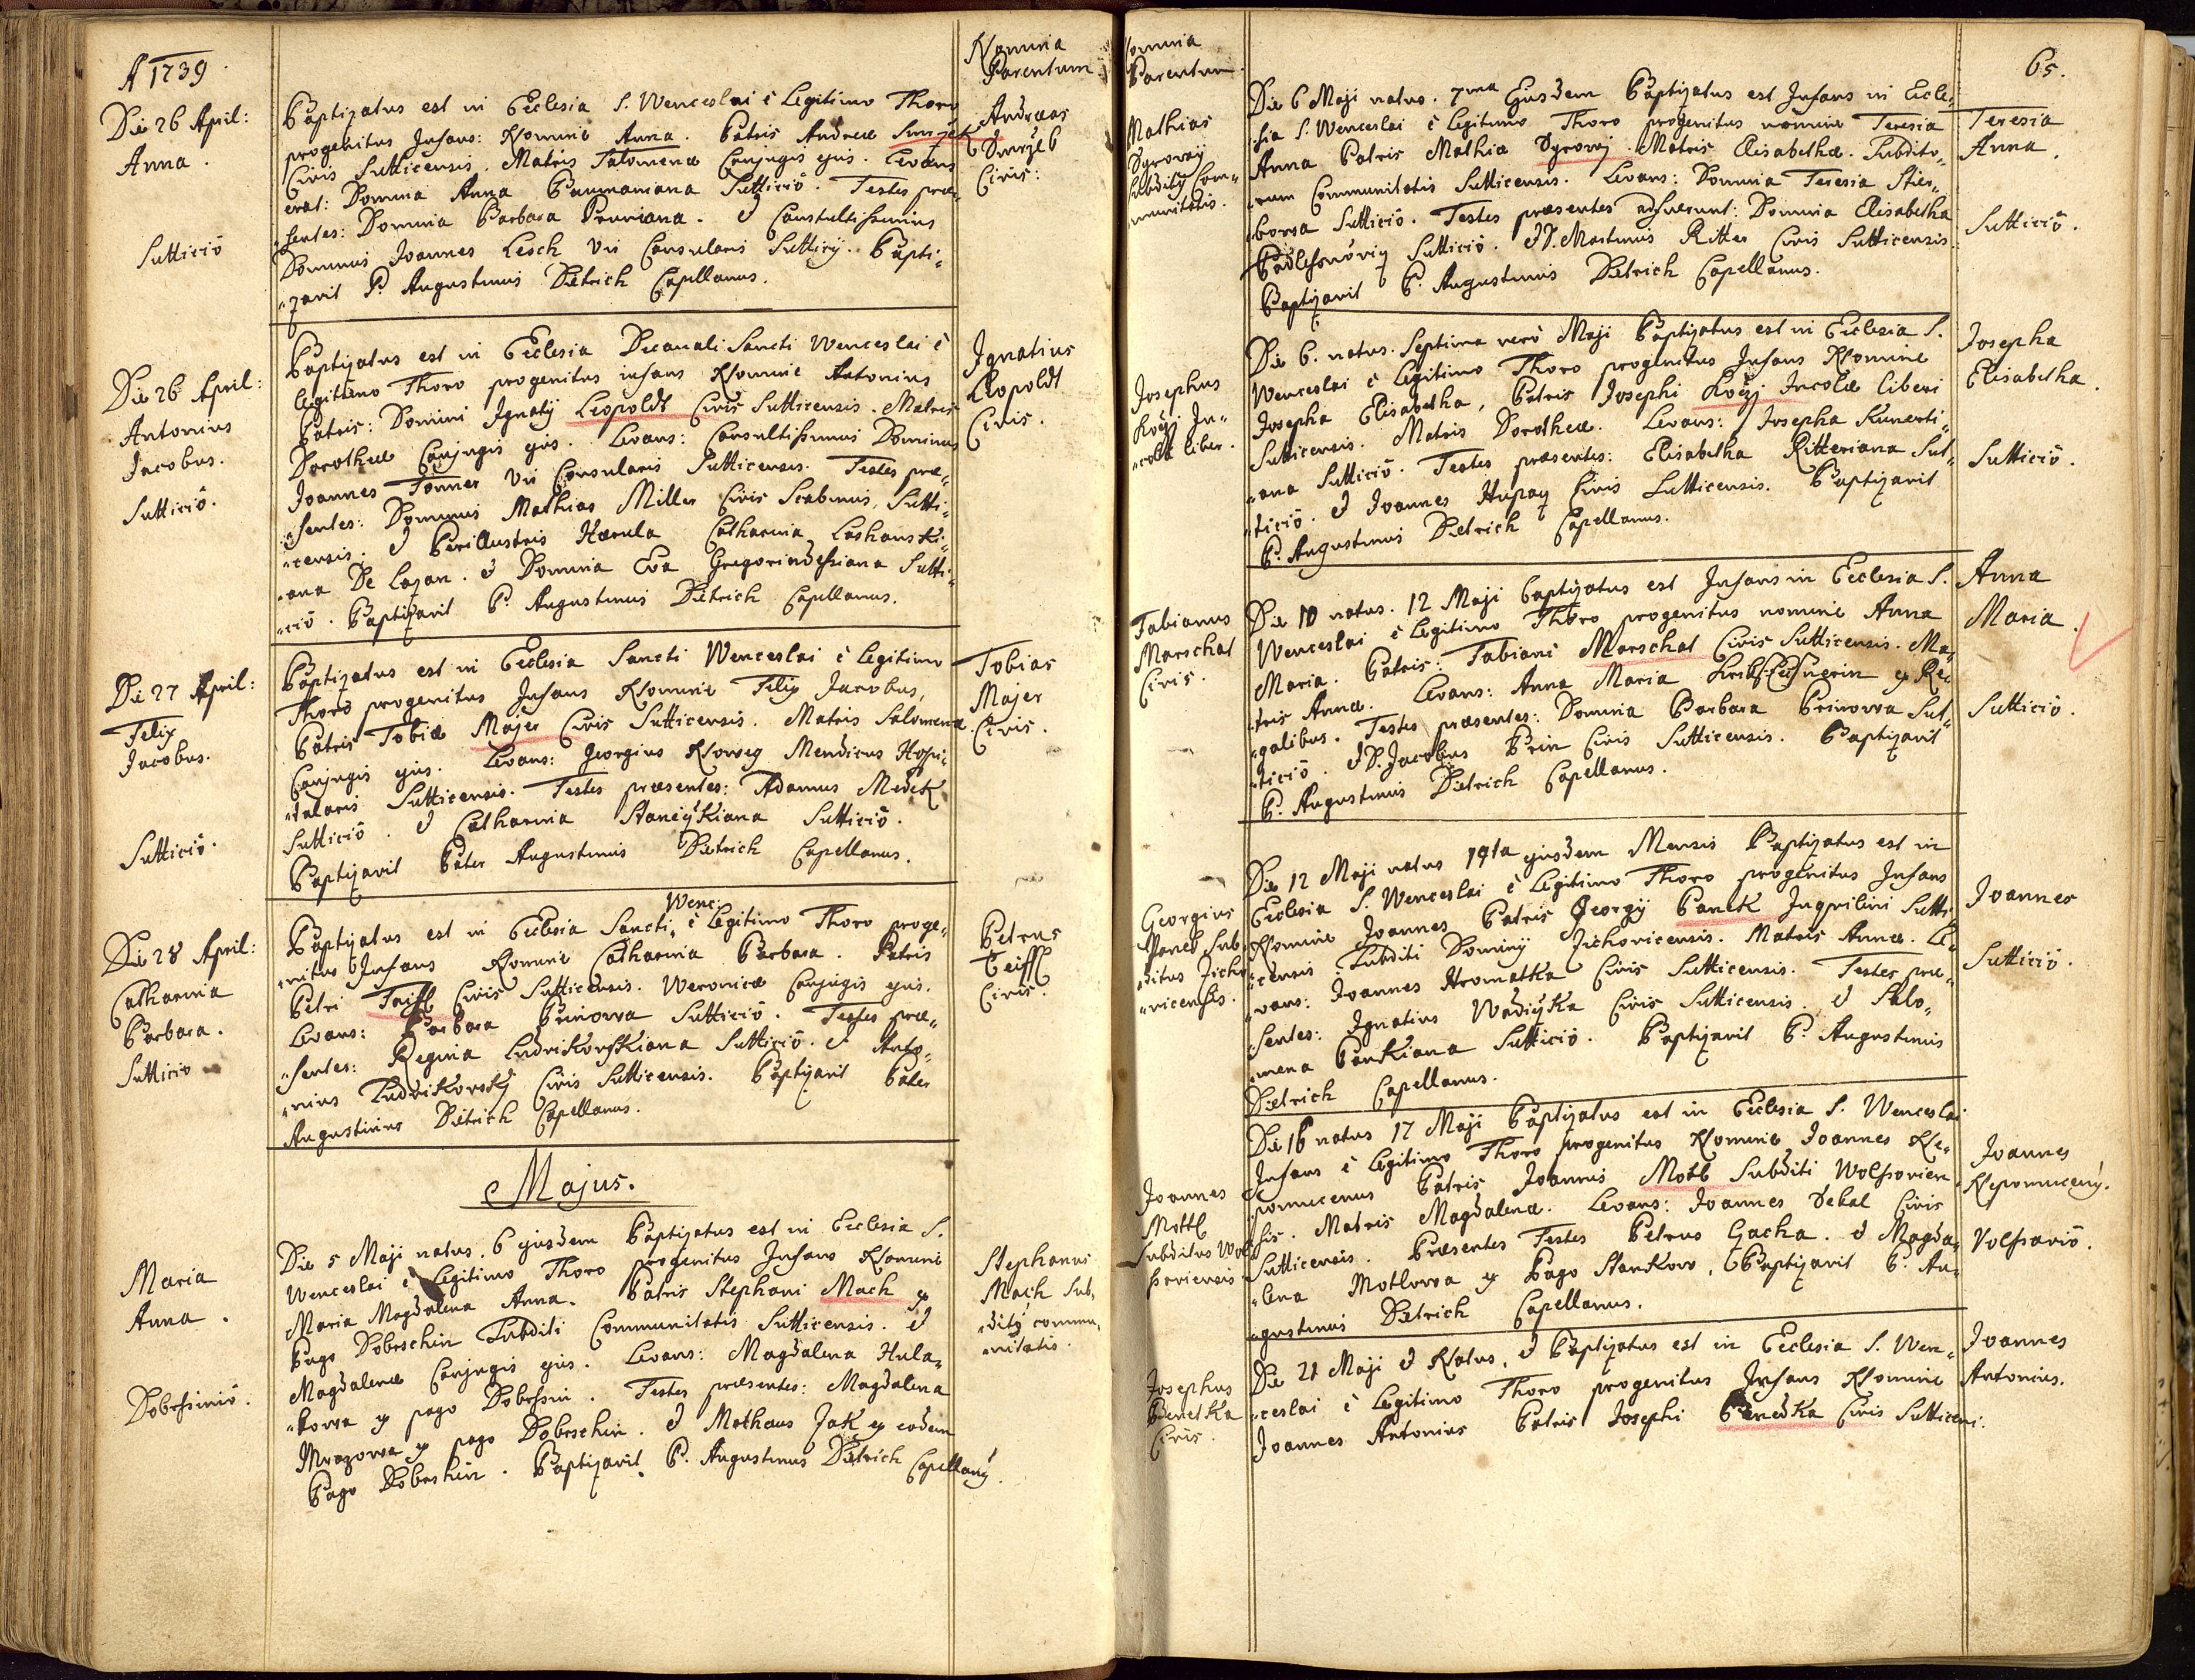 A 1739.
Nomina
Parentum.
Die 26 April:
Anna.
Suttició
Baptizatus est in Ecclesia S. Wenceslai è Legitimo Thoro
progenitus Infans: Nomine Anna. Patris Andreæ
Civis Sutticensis. Matris Salomenæ Conjugis ejus. Levans
erat: Domina Anna Baumaniana Suttició. Testes præ„
„sentes: Domina Barbara Pruniana. et Consultissimus
Dominus Joannes Lesch Vir Consularis Sutticij. Bapti„
„zavit P. Augustinus Dietrich Capellanus.
Andreas
Civis:
Die 26 April:
Antonius
Jacobus.
Suttició.
Baptizatus est in Ecclesia Decanali Sancti Wenceslai è
legitimo Thoro progenitus infans Nomine Antonius
Patris: Domini Ignatij Leopoldt Civis Sutticensis. Matris
Dorotheæ Conjugis ejus. Levans: Consultissimus Dominus
Joannes Tonner Vir Consularis Sutticensis. Testes præ„
„sentes: Dominus Mathias Miller Civis Scabinus, Sutti„
„censis. et Perillustris Herula Catharina Loshanski„
„ana De Lazan. et Domina Eva Gregoriadessiana Sutti„
„ció. Baptizavit P. Augustinus Dietrich Capellanus.
Ignatius
Leopoldt
Civis.
Die 27 April:
Felix
Jacobus.
Suttició.
Baptizatus est in Ecclesia Sancti Wenceslai è Legitimo
Thoro progenitus Infans Nomine Felix Jacobus,
Patris Tobiæ Majer Civis Sutticensis. Matris Salomenæ
Conjugis ejus. Levans: Georgius Nowey Mendicus Hospi„
„talaris Sutticensis. Testes præsentes: Adamus Medek
Suttició. et Catharina Stancÿkiana Suttició.
Baptizavit Pater Augustinus Dietrich Capellanus.
Tobias
Majer
Civis.
Die 28 April:
Catharina
Barbara.
Suttició
Wenc:
Baptizatus est in Ecclesia Sancti è Legitimo Thoro proge„
„nitus Infans Nomine Catharina Barbara. Patris
Petri Teiffl Civis Sutticensis. Weronicæ Conjugis ejus.
Levans: Barbara Prinowa Suttició. Testes præ„
„sentes: Regina Ludvikowskiana Suttició. et Anto„
„nius Ludvikowskÿ Civis Sutticensis. Baptizavit Pater
Augustinus Dietrich Capellanus.
Petrus
Teiffl
Civis.
Majus.
Maria
Anna.
Dobrssinió.
Die 5 Maji natus. 6 ejusdem Baptizatus est in Ecclesia S.
Wenceslai è Legitimo Thoro progenitus Infans Nomine
Maria Magdalena Anna. Patris Stephani Mach ex
Pago Dobrschin Subditi Communitatis Sutticensis. et
Magdalenæ Conjugis ejus. Levans: Magdalena Hula„
„kowa ex pago Dobrssin. Testes præsentes: Magdalena
Mrazowa ex pago Dobrschin. et Mathæus Jak ex eodem
Pago Dobrshin. Baptizavit P. Augustinus Dietrich Capellanÿ.
Stephanus
Mach Sub„
„ditÿ commu„
„nitatis.
Nomina
Parentum.
65.
Mathias
Communitatis.
Die 6 Maji natus. 7ma Ejusdem Baptizatus est Infans in Eccle„
„sia S. Wenceslai è Legitimo Thoro progenitus nomine Teresia
Anna Patris Mathiæ Matris Elisabethæ. Subdito„
„rum Communitatis Sutticensis. Levans: Domina Teresia Stier„
„bowa Suttició. Testes præsentes adfuerunt: Domina Elisabetha
Suttició. et D. Martinus Ritter Civis Sutticensis
Baptizavit P. Augustinus Dietrich Capellanus.
Teresia
Anna.
Suttició.
Josephus
Kočzj In„
„cola liber.
Die 6. natus. Septima verò Maji Baptizatus est in Ecclesia S.
Wenceslai è Legitimo Thoro progenitus Infans Nomine
Josepha Elisabetha, Patris Josephi Kočzj Incolæ liberi
Sutticensis. Matris Dorotheæ. Levans: Josepha Kunerti„
„ana Suttició. Testes præsentes: Elisabetha Ritteriana Sut„
„tició. et Joannes Hupay Civis Sutticensis. Baptizavit
P. Augustinus Dietrich Capellanus.
Josepha
Elisabetha.
Suttició.
Fabianus
Marschal
Civis.
Die 10 natus. 12 Maji Baptizatus est Infans in Ecclesia S.
Wenceslai è Legitimo Thoro progenitus nomine Anna
Maria. Patris: Fabiani Marschal Civis Sutticensis. Ma„
„tris Annæ. Levans: Anna Maria ex Re„
„galibus. Testes præsentes: Domina Barbara Prinowa Sut„
„tició. et D. Jacobus Prin Civis Sutticensis. Baptizavit
P. Augustinus Dietrich Capellanus.
Anna
Maria.
Suttició.
Georgius
Panek Sub„
„ditus Zicho„
„vicensis.
Die 12 Maji natus 14ta ejusdem Mensis Baptizatus est in
Ecclesia S. Wenceslai è Legitimo Thoro progenitus Infans
Nomine Joannes Patris Georgij Panek Inquilini Sutti„
„censis Subditi Dominij Zichovicensis. Matris Annæ. Le„
„vans: Joannes Hromatka Civis Sutticensis. Testes præ„
„sentes: Ignatius Wodičzka Civis Sutticensis. et Salo„
„mena Pankiana Suttició. Baptizavit P. Augustinus
Dietrich Capellanus.
Joannes
Suttició.
Joannes
Mottl
Subditus Wol„
„ssoviensis
Die 16 natus 17 Maji Baptizatus est in Ecclesia S. Wenceslai
Infans è Legitimo Thoro progenitus Nomine Joannes Ne„
„pomucenus Patris Joannis Mottl Subditi Wolssovien„
„sis. Matris Magdalenæ. Levans: Joannes Dekal Civis
Sutticensis. Præsentes Testes Petrus Gacha. et Magda„
„lena Motlowa ex Pago Stankow, Baptizavit P. Au„
„gustinus Dietrich Capellanus.
Joannes
Nepomucenÿ.
Volssavió.
Josephus
Benetka
Civis.
Die 21 Maji et Natus, et Baptizatus est in Ecclesia S. Wen„
„ceslai è Legitimo Thoro progenitus Infans Nomine
Joannes Antonius Patris Josephi Benedka Civis Sutticens:
Joannes
Antonius.